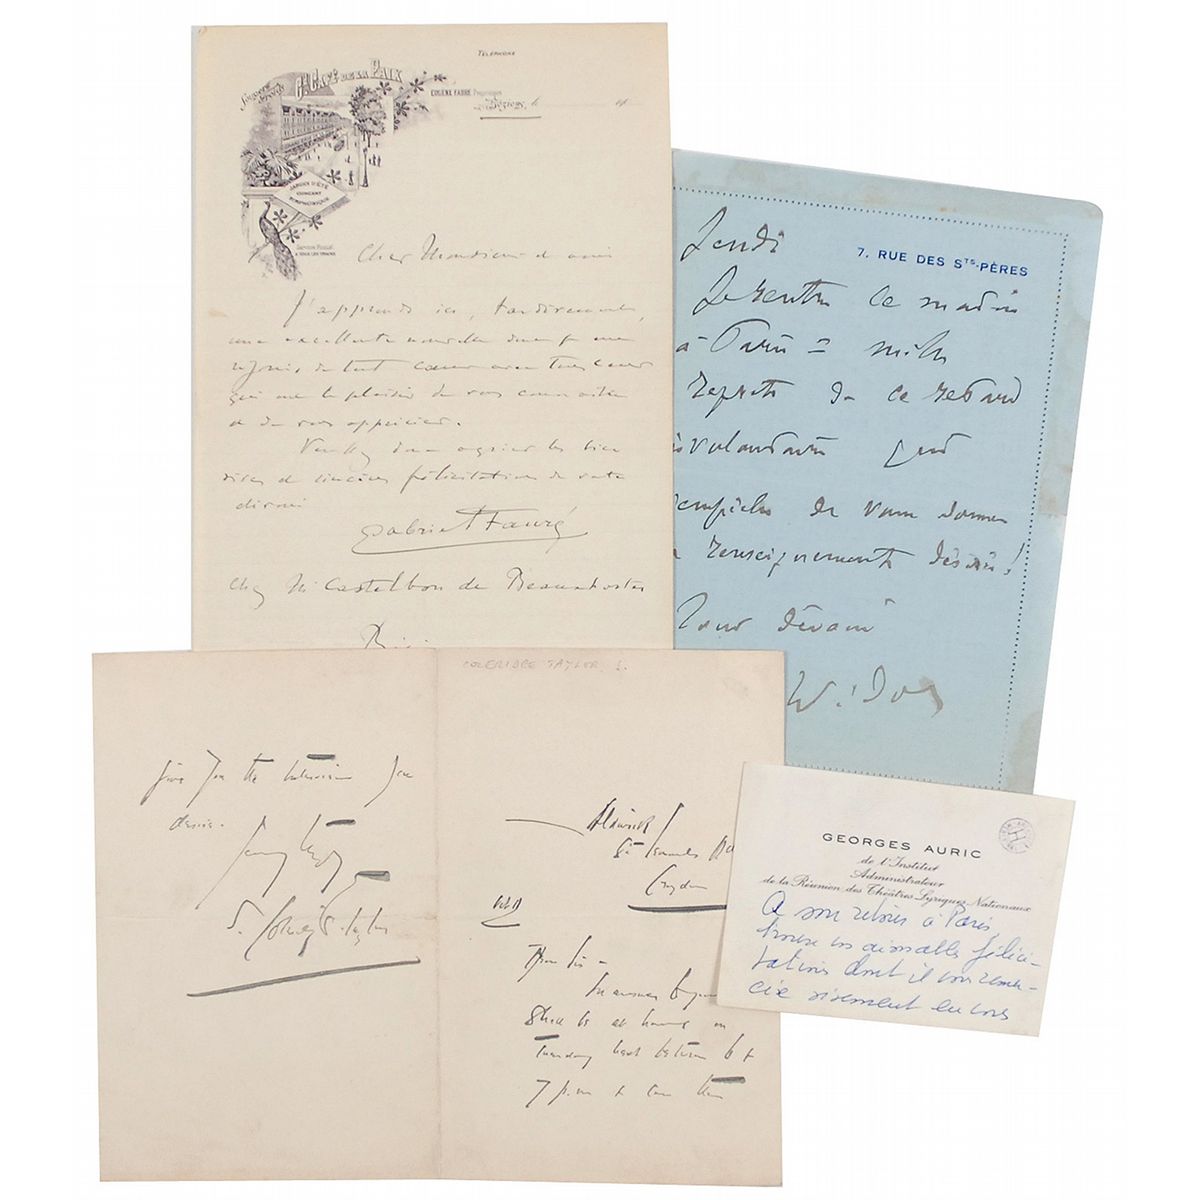 TÉLÉPHONE
Gd. CAFÉ DE LA PAIX
EUGÈNE FABRE Propriétaire
Béziers, le
JARDIN D'ÉTÉ
CONCERT
SYMPHONIQUE
Cher Monsieur et ami
J'apprends ici, tardivement,
une excellente nouvelle dont je me
réjouis de tout cœur avec tous ceux
qui ont le plaisir de vous connaître
et de vous apprécier.
Veuillez donc agréer les bien
vives et sincères félicitations de votre
dévoué
Gabriel Fauré
chez M. Castelbon de Beauxhostes
7. RUE DES STS-PÈRES
Jeudi
Je rentre ce matin
à Paris = mille
regrets de ce retard
involontaire qui
empêche de vous donner
renseignements désirés!
Votre dévoué
Widor
COLERIDGE TAYLOR S.
give you the interview you
desire.
S. Coleridge-Taylor
Aldwick
St Leonards Rd
Croydon
Dear Sir –
In answer to your
I shall be at home on
Tuesday next between 6 &
7 p.m & can then
GEORGES AURIC
de l'Institut
Administrateur
de la Réunion des Théâtres Lyriques Nationaux
A son retour à Paris,
trouve vos aimables félici-
tations dont il vous remer-
cie vivement en vous